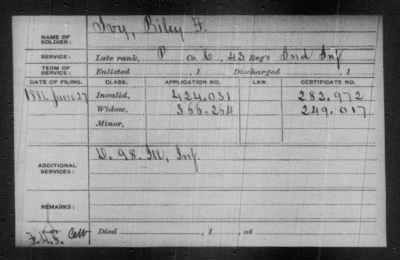 NAME OF SOLDIER: Ivy, Riley F.
SERVICE: Late rank, P Co. C, 43 Reg't Ind Inf
TERM OF SERVICE: Enlisted , 1 Discharged , 1
DATE OF FILING. CLASS. APPLICATION NO. LAW. CERTIFICATE NO.
1881 June 27 Invalid, 424.031 282.972
Widow, 366.264 249.017
Minor,
ADDITIONAL SERVICES: D. 98. Ill, Inf.
REMARKS:
Died , 1 , at